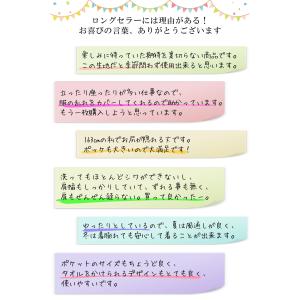 ロングセラーには理由がある！
お喜びの言葉、ありがとうございます
楽しみに待っていた期待を裏切らない商品です。
この生地だと季節問わず使用出来ると思います。
立ったり座ったりが多い仕事なので、
服の乱れをカバーしてくれるので助かっています。
もう一枚購入しようと思っています。
163cmの私でお尻が隠れる丈です。
ポッケも大きいので大満足です！
洗ってもほとんどシワができないし、
肩幅もしっかりしていて、ずれる事も無く、
肩もぜんぜん凝らない。買って良かったー。
ゆったりとしているので、夏は風通しが良く、
冬は着膨れても安心して着ることが出来ます。
ポケットのサイズもちょうど良く、
タオルをかけられるデザインもとても良く、
使いやすいです。